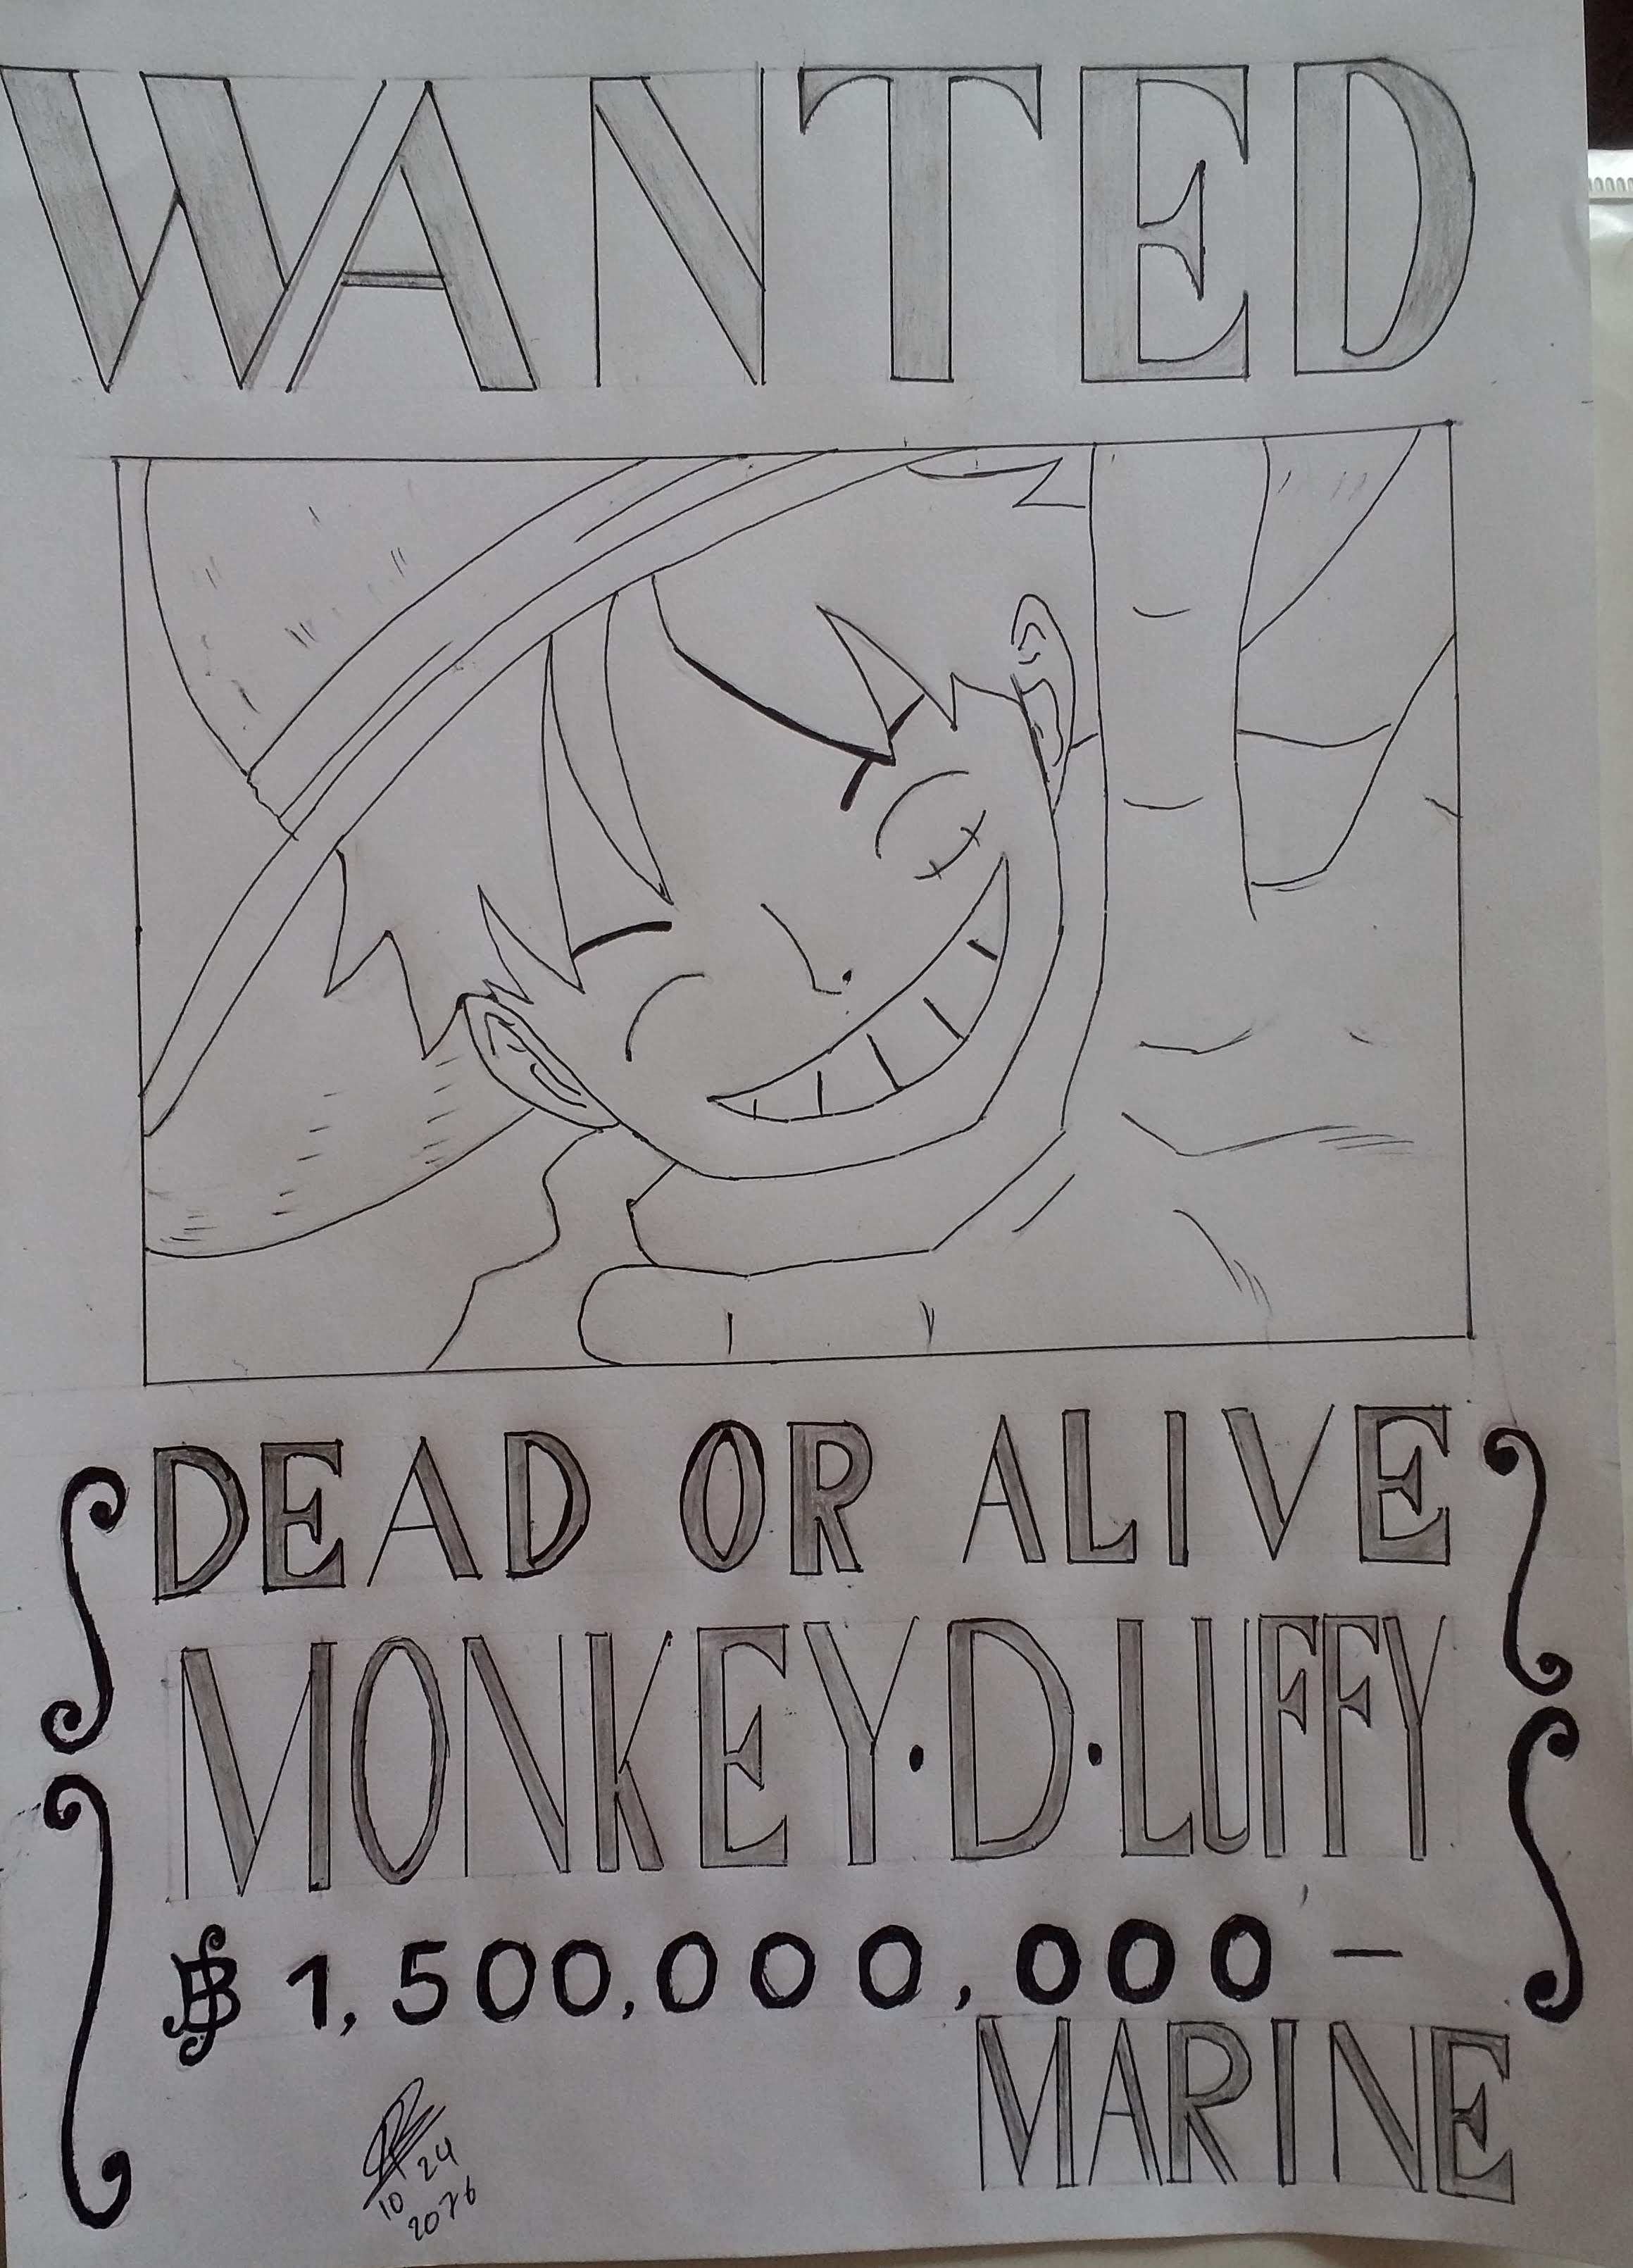 WANTED
DEAD OR ALIVE
MONKEY·D·LUFFY
฿ 1,500,000,000 –
MARINE
24
10
2076